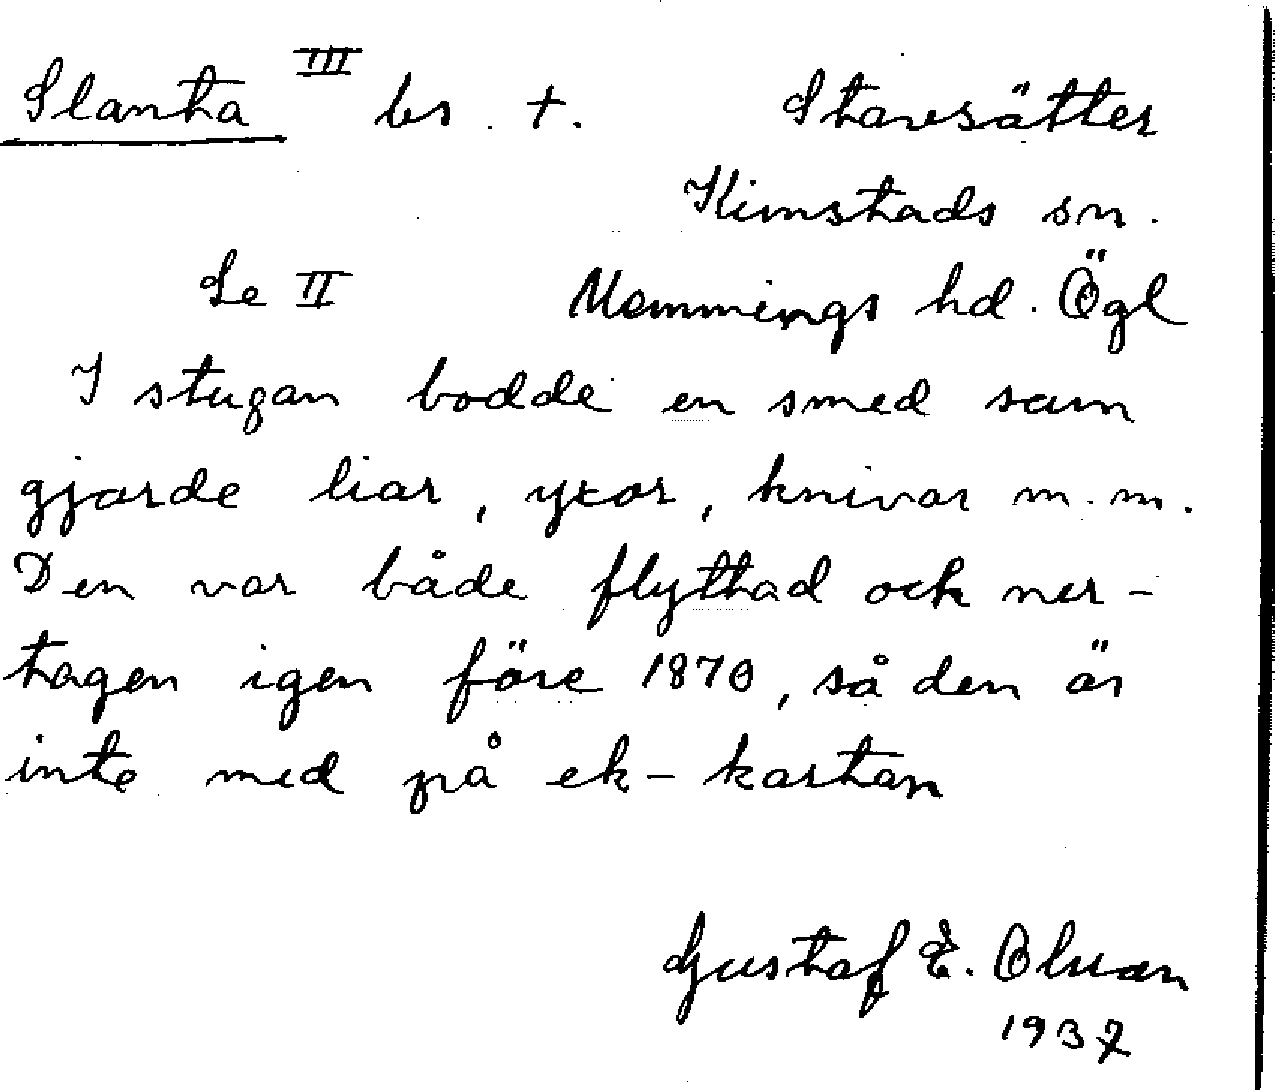 Slanka III bs. +. Stavsätter
Kimstads sn.
Se II Memmings hd. Ögl
I stugan bodde en smed som
gjorde liar, yxor, knivar m.m.
Den var både flyttad ock ner-
tagen igen före 1870, så den är
inte med på ek-kartan
Gustaf E. Olsson
1937